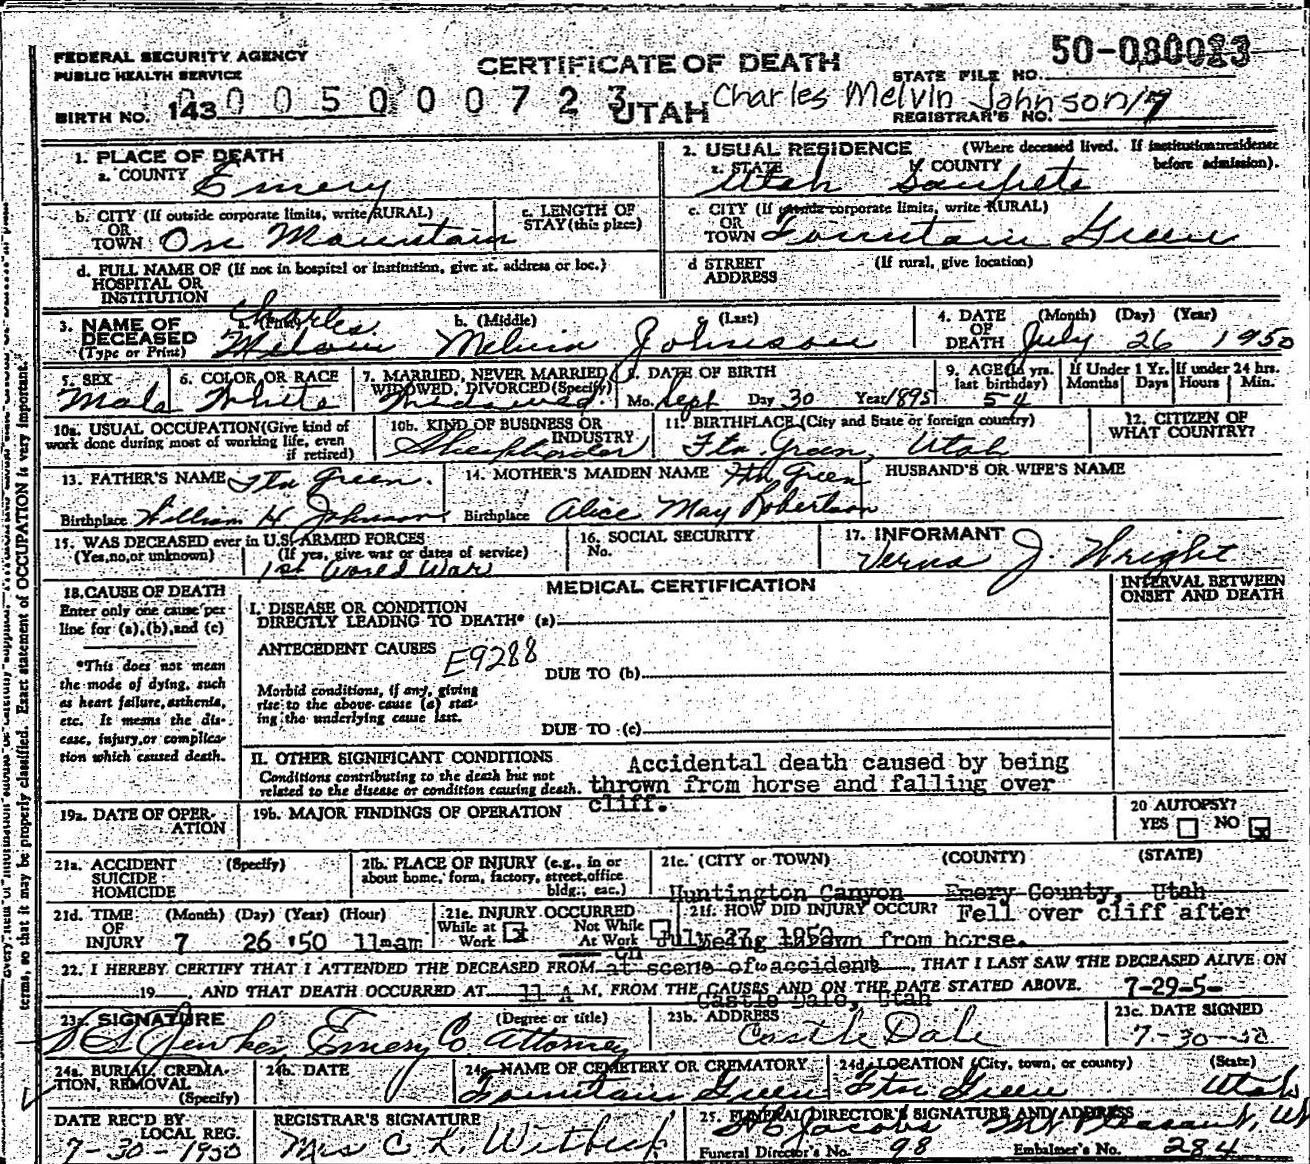 FEDERAL SECURITY AGENCY
PUBLIC HEALTH SERVICE
CERTIFICATE OF DEATH
UTAH
50-080023
STATE FILE NO.
Charles Melvin Johnson
REGISTRAR'S NO. 17
BIRTH NO. 143
0 0 0 5 0 0 0 7 2 3
1. PLACE OF DEATH
a. COUNTY Emery
b. CITY (If outside corporate limits, write RURAL)
OR
TOWN On Mountain
c. LENGTH OF
STAY (this place)
d. FULL NAME OF (If not in hospital or institution, give st. address or loc.)
HOSPITAL OR
INSTITUTION
2. USUAL RESIDENCE (Where deceased lived. If institution: residence
before admission).
a. STATE Utah COUNTY Sanpete
c. CITY (If outside corporate limits, write RURAL)
OR
TOWN Fountain Green
d STREET (If rural, give location)
ADDRESS
3. NAME OF a. (First) b. (Middle) c. (Last)
DECEASED Charles Melvin Johnson
(Type or Print)
4. DATE (Month) (Day) (Year)
OF
DEATH July 26 1950
5. SEX
Male
6. COLOR OR RACE
White
7. MARRIED, NEVER MARRIED,
WIDOWED, DIVORCED (Specify)
Widowed
8. DATE OF BIRTH
Mo. Sept Day 30 Year 1895
9. AGE (In yrs. last birthday)
54
If Under 1 Yr. If under 24 hrs.
Months Days Hours Min.
10a. USUAL OCCUPATION (Give kind of
work done during most of working life, even
if retired)
10b. KIND OF BUSINESS OR
INDUSTRY
Sheepherder
11. BIRTHPLACE (City and State or foreign country)
Ftn. Green, Utah
12. CITIZEN OF
WHAT COUNTRY?
13. FATHER'S NAME Ftn Green.
Birthplace William H Johnson
14. MOTHER'S MAIDEN NAME Ftn Green
Birthplace Alice May Robertson
HUSBAND'S OR WIFE'S NAME
15. WAS DECEASED ever in U.S. ARMED FORCES
(Yes, no, or unknown) (If yes, give war or dates of service)
1st World War
16. SOCIAL SECURITY
No.
17. INFORMANT
Verna J. Wright
18. CAUSE OF DEATH
Enter only one cause per
line for (a), (b), and (c)
*This does not mean
the mode of dying, such
as heart failure, asthenia,
etc. It means the dis-
ease, injury, or complica-
tion which caused death.
MEDICAL CERTIFICATION
INTERVAL BETWEEN
ONSET AND DEATH
I. DISEASE OR CONDITION
DIRECTLY LEADING TO DEATH* (a)
ANTECEDENT CAUSES
E9288
DUE TO (b)
Morbid conditions, if any, giving
rise to the above cause (a) stat-
ing the underlying cause last.
DUE TO (c)
II. OTHER SIGNIFICANT CONDITIONS
Conditions contributing to the death but not
related to the disease or condition causing death.
Accidental death caused by being
thrown from horse and falling over
cliff.
19a. DATE OF OPER-
ATION
19b. MAJOR FINDINGS OF OPERATION
20 AUTOPSY?
YES NO
21a. ACCIDENT (Specify)
SUICIDE
HOMICIDE
21b. PLACE OF INJURY (e.g., in or
about home, farm, factory, street, office
bldg., etc.)
21c. (CITY or TOWN) (COUNTY) (STATE)
Huntington Canyon Emery County, Utah
21d. TIME (Month) (Day) (Year) (Hour)
OF
INJURY 7 26 '50 11 am
21e. INJURY OCCURRED
While at Work Not While At Work
21f. HOW DID INJURY OCCUR? Fell over cliff after
being thrown from horse.
July 27 1950
on
22. I HEREBY CERTIFY THAT I ATTENDED THE DECEASED FROM at scene of to accident, THAT I LAST SAW THE DECEASED ALIVE ON
19 AND THAT DEATH OCCURRED AT 11 A M. FROM THE CAUSES AND ON THE DATE STATED ABOVE. 7-29-5-
Castle Dale, Utah
23a. SIGNATURE (Degree or title)
Emery Co Attorney
23b. ADDRESS
Castle Dale
23c. DATE SIGNED
7-30-50
24a. BURIAL, CREMA-
TION, REMOVAL
(Specify)
24b. DATE
24c. NAME OF CEMETERY OR CREMATORY
Fountain Green
24d. LOCATION (City, town, or county) (State)
Ftn Green Utah
DATE REC'D BY
LOCAL REG.
7-30-1950
REGISTRAR'S SIGNATURE
Mrs C. K. Witbeck
25. FUNERAL DIRECTOR'S SIGNATURE AND ADDRESS
Jacobs Mt Pleasant, Ut
Funeral Director's No. 98 Embalmer's No. 284
terms, so that it may be properly classified. Exact statement of OCCUPATION is very important.